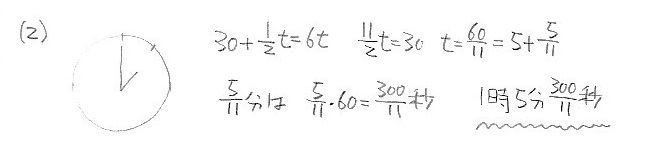 (2) 30+1/2t=6t 11/2t=30 t=60/11=5+5/11
5/11分は 5/11・60=300/11秒 1時5分300/11秒